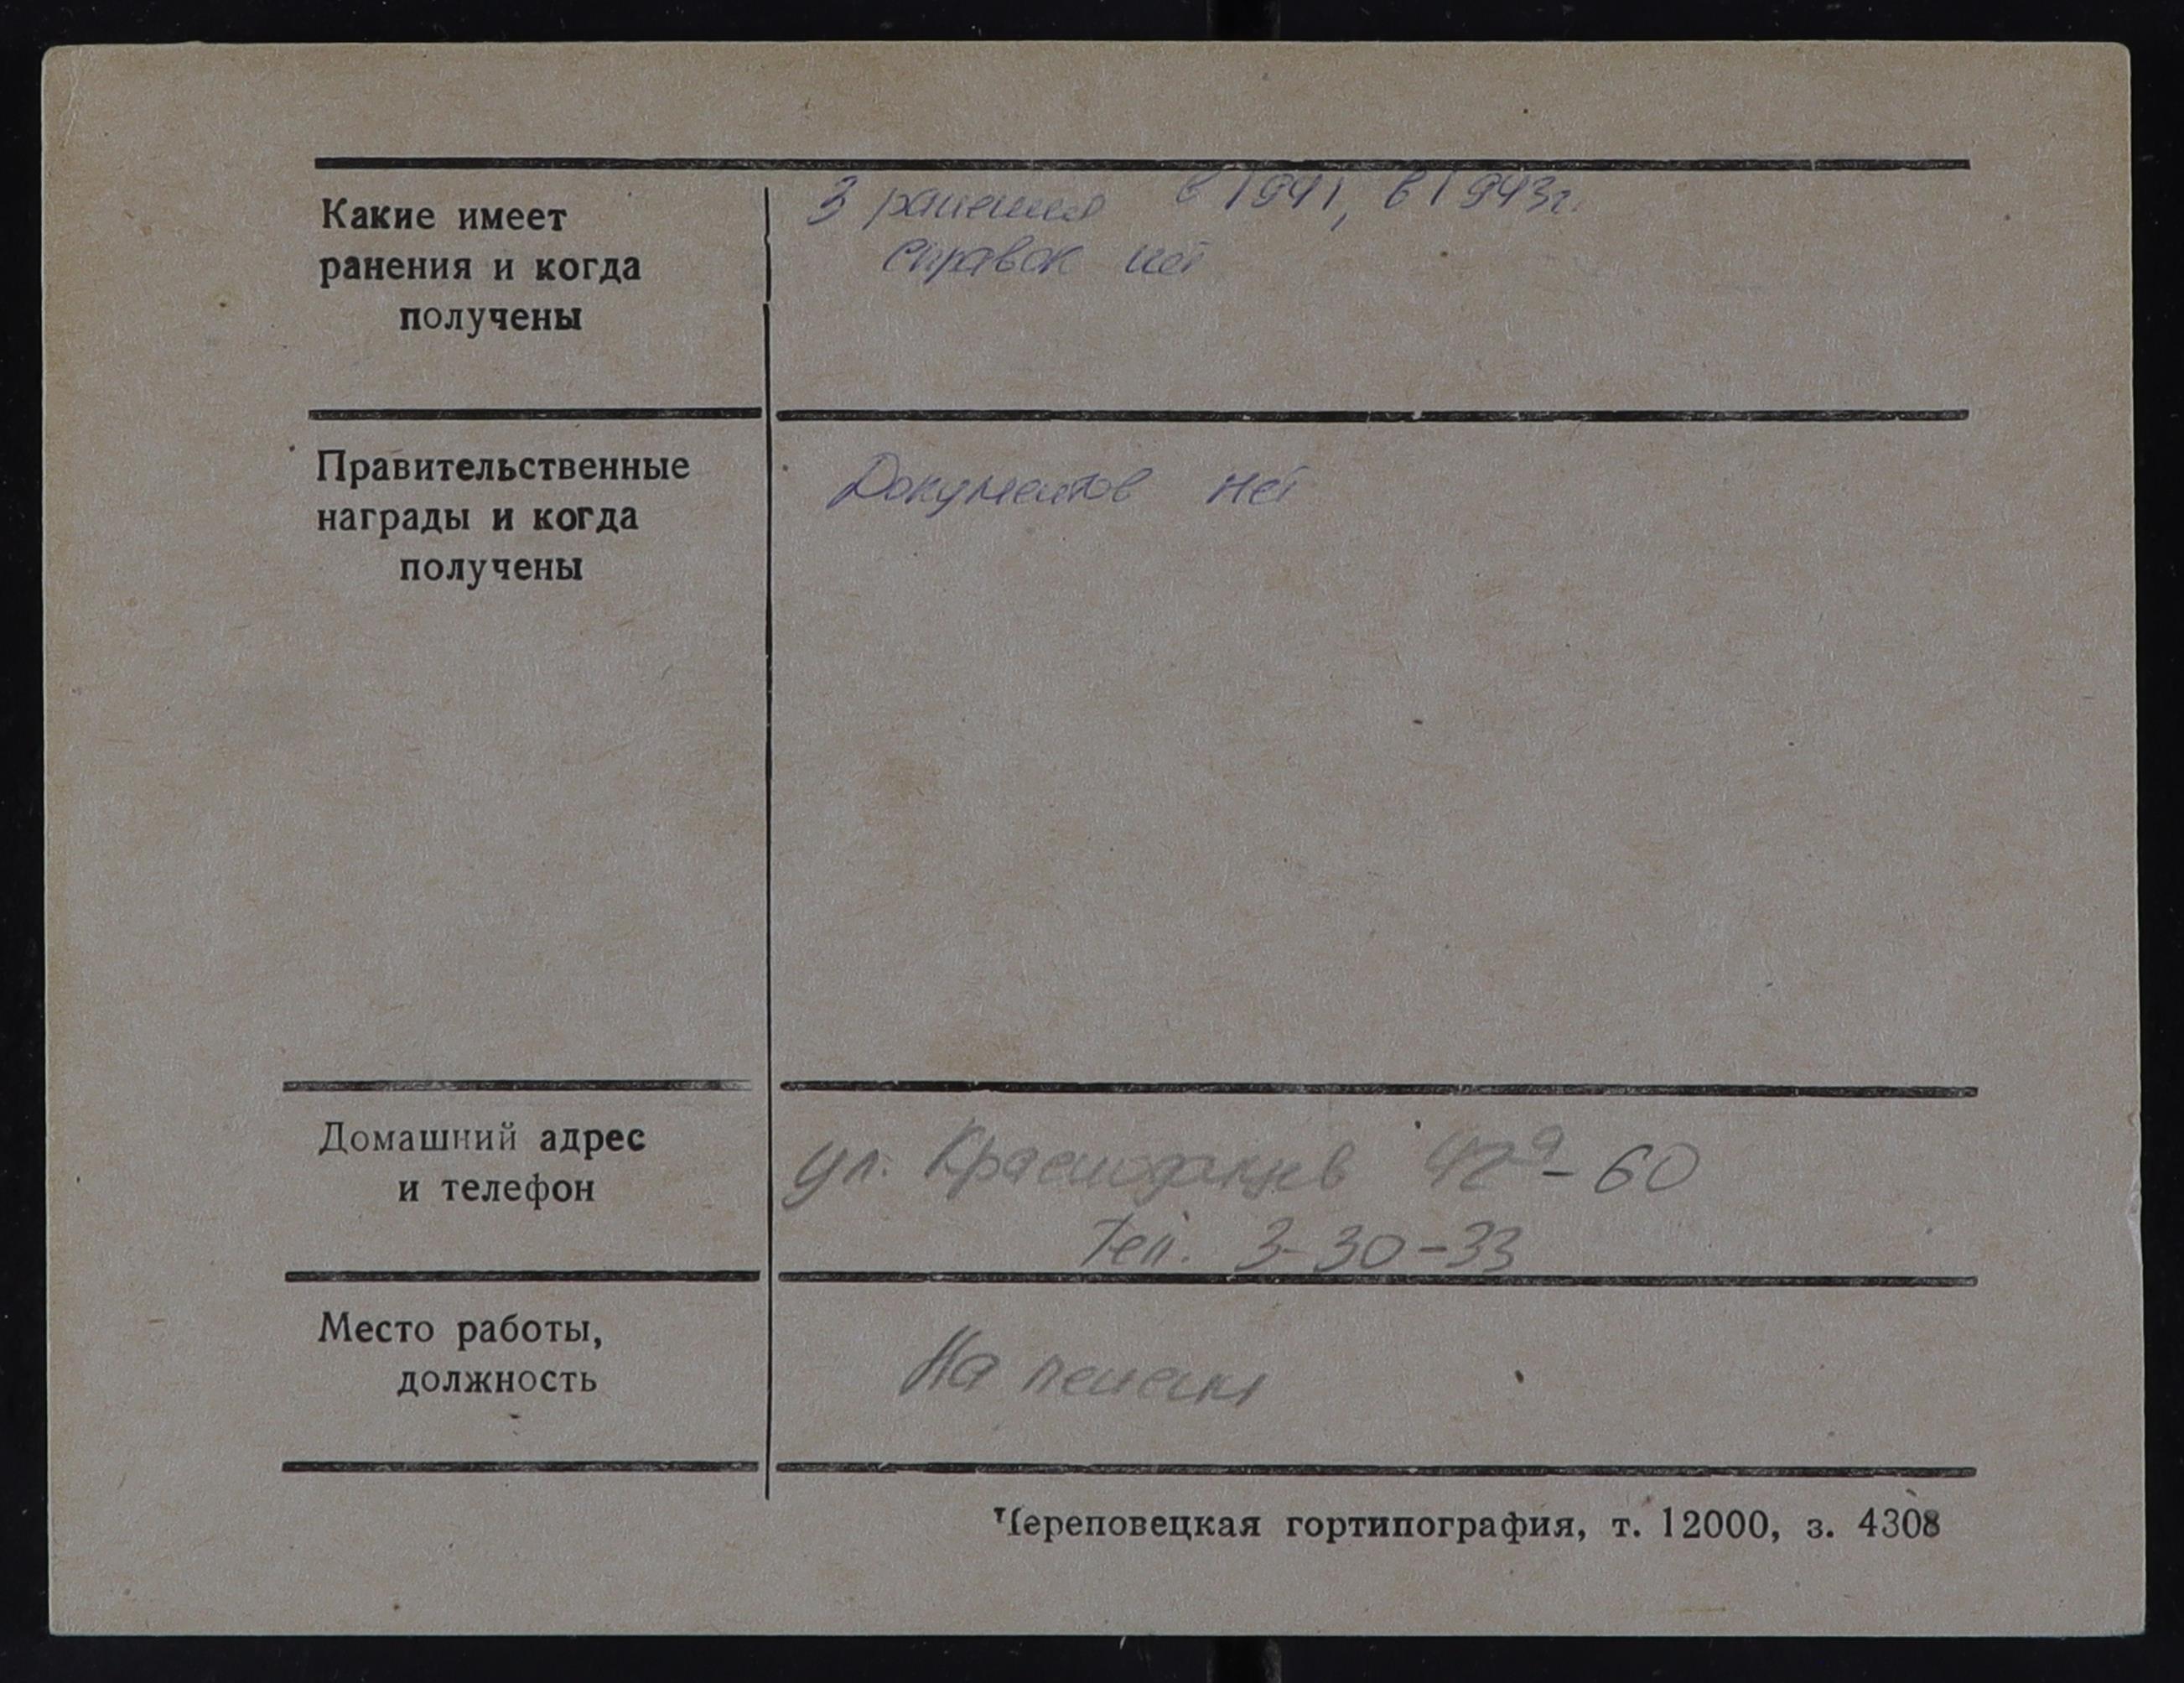 Какие имеет
ранения и когда
получены
3 ранения в 1941, в 1943г.
справок нет
Правительственные
награды и когда
получены
Документов нет
Домашний адрес
и телефон
ул. Краснодонцев
- 60
Тел. 3-30-33
Место работы,
должность
На пенсии
Череповецкая гортипография, т. 12000, з. 4308